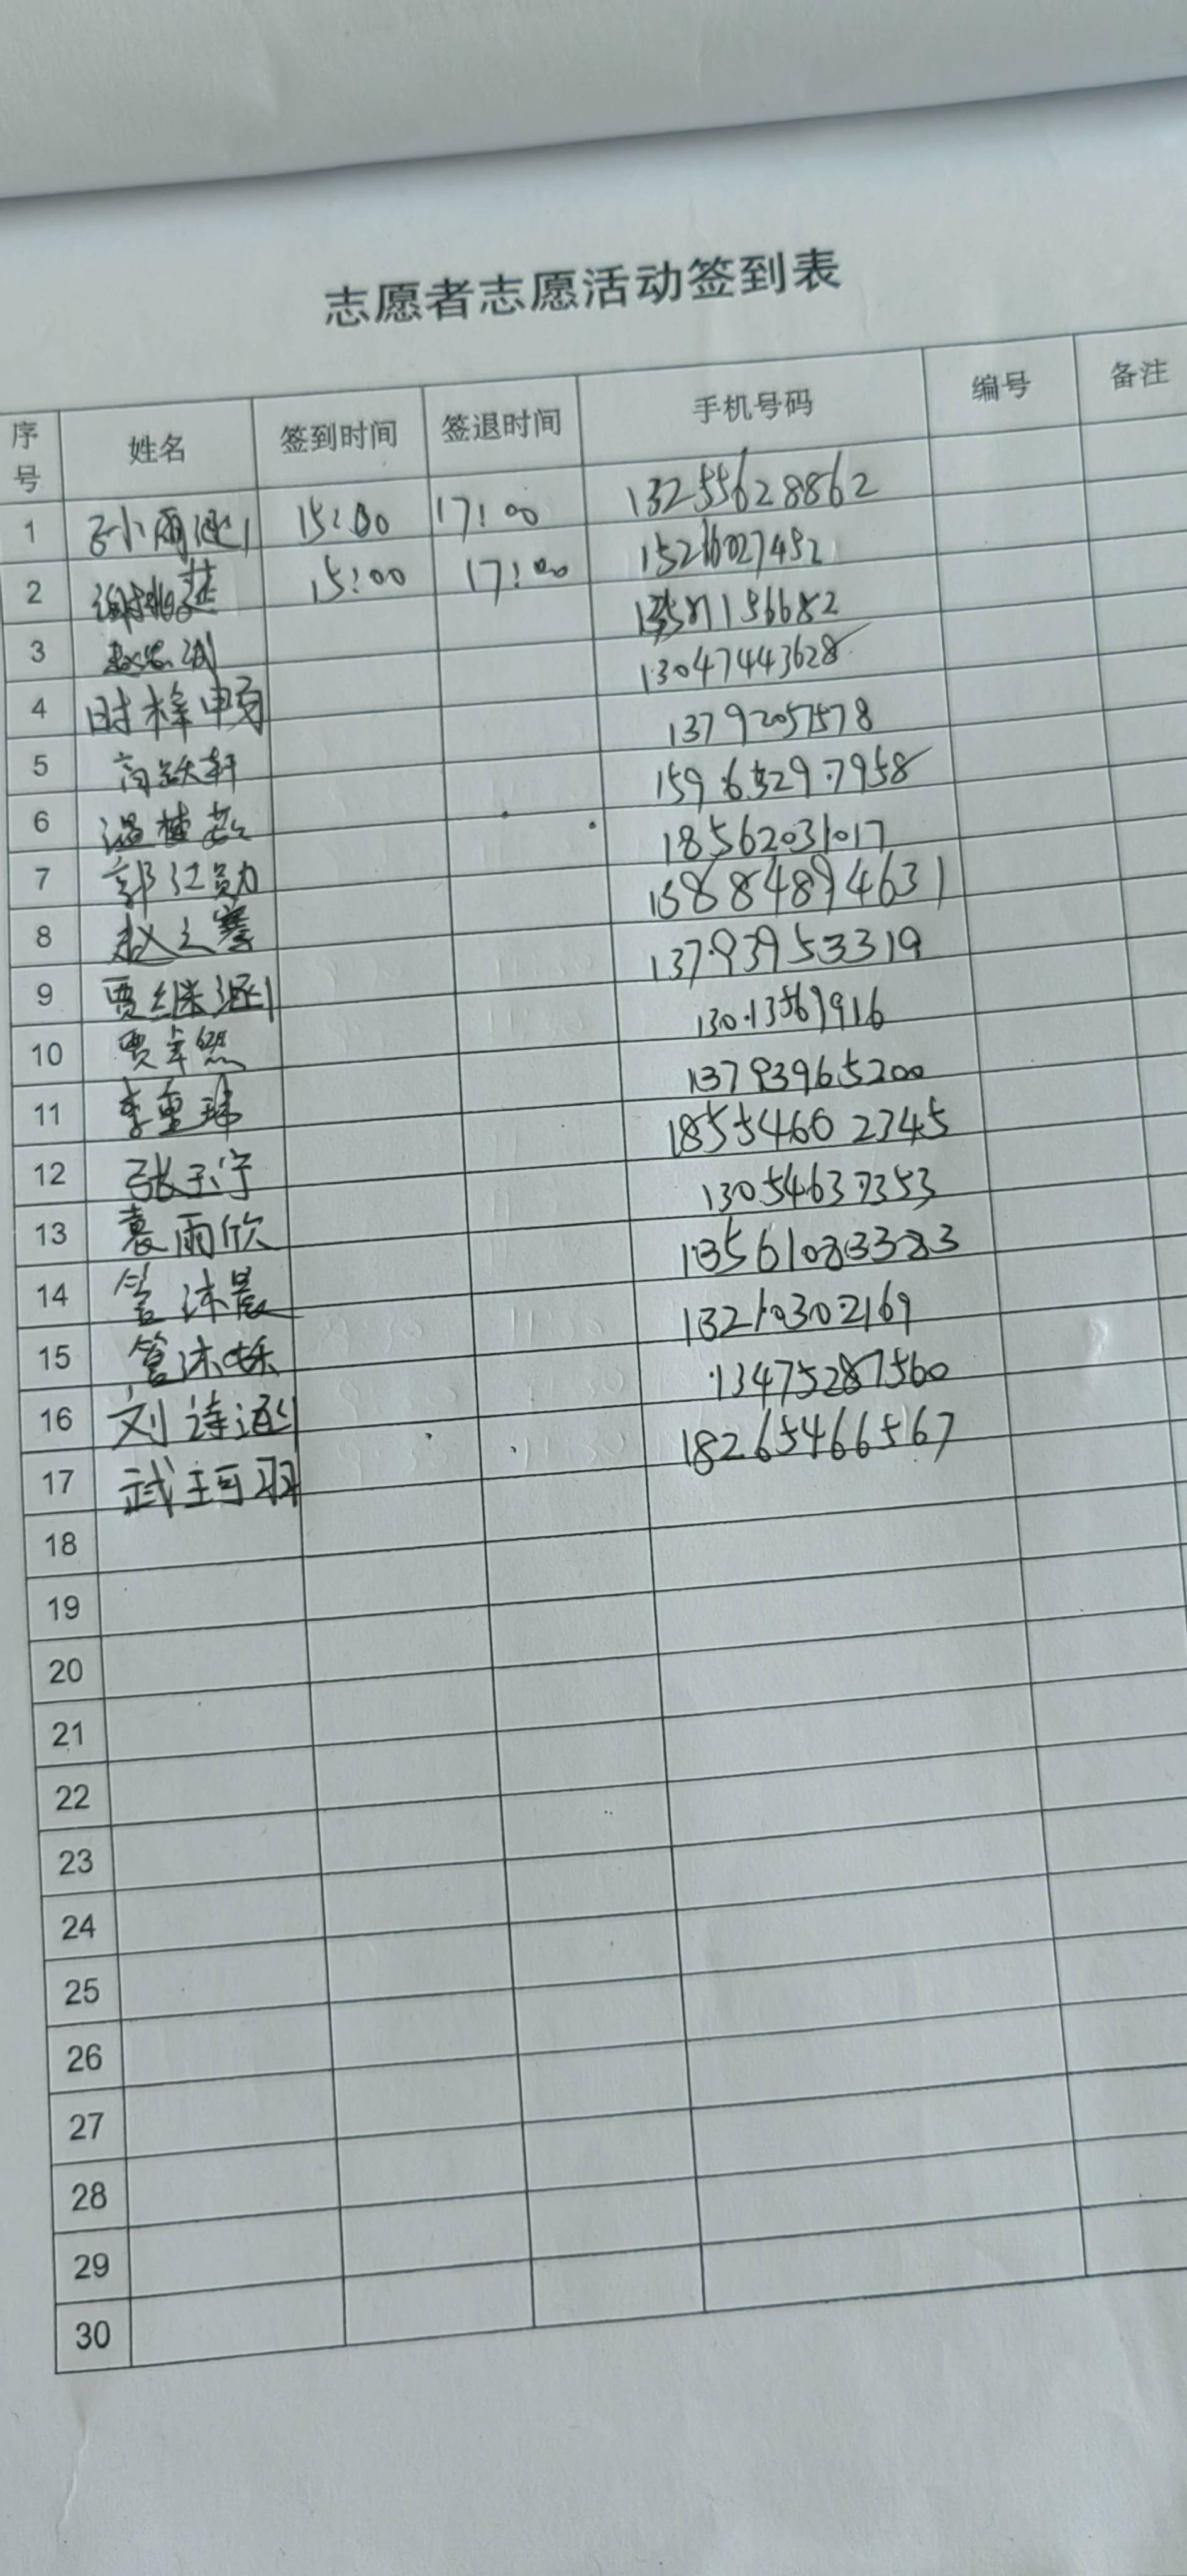 志愿者志愿活动签到表
序号 姓名 签到时间 签退时间 手机号码 编号 备注
1 孙雨涵 15:00 17:00 13255628862
2 15:00 17:00
3
4 13047443628
5 高跃轩 13792057578
6 温楚 15965297958
7 郭江勋 18562031017
8 赵之骞 15884894631
9 贾继涵 13793953319
10 贾卓然 13013569916
11 李重玮 13793965200
12 张玉宁 18554602345
13 袁雨欣 13054637353
14 管沐晨 13561083383
15 管沐 13210302169
16 刘诗涵 13475287560
17 武珂羽 18265466567
18
19
20
21
22
23
24
25
26
27
28
29
30